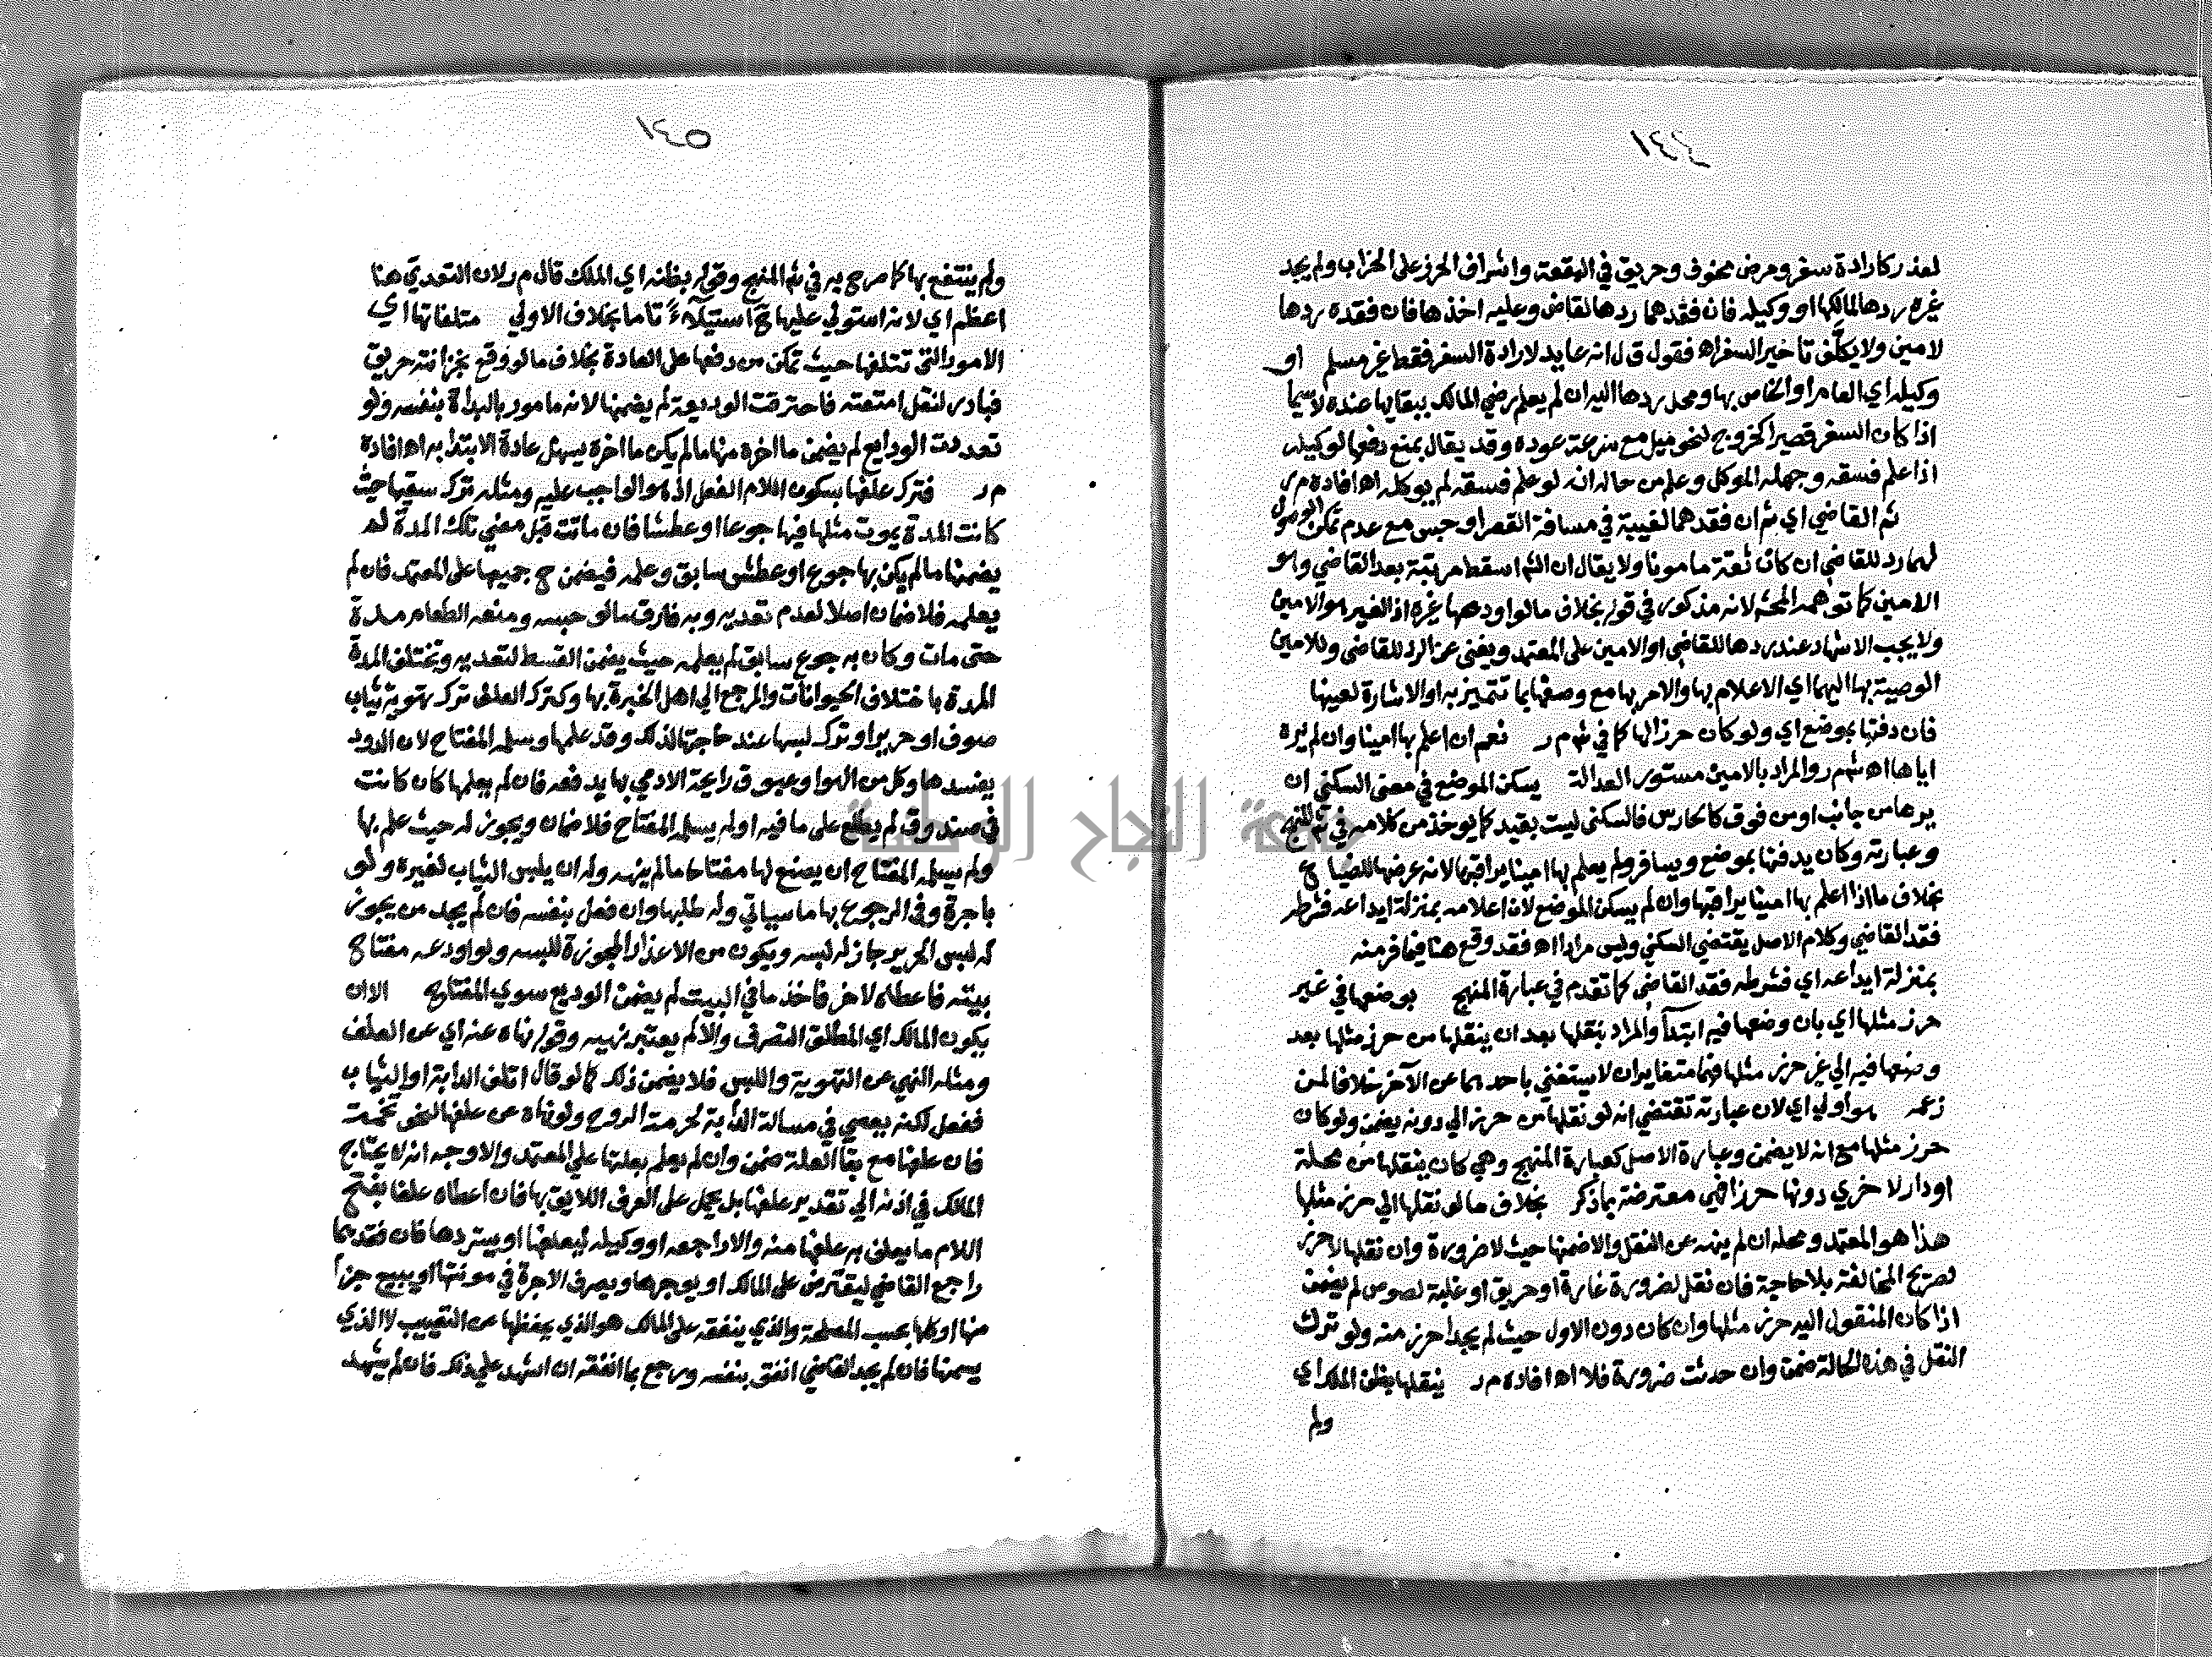 ١٤٤
لعذر كارادة سفر ومرض مخوف وحريق في البقعة واشراف الحرز على الخراب ولم يجد
غيره ردها لمالكها او وكيله فان فقدهما ردها لقاض وعليه اخذها فان فقده ردها
لامين ولا يكلف تاخير السفر اه فقول ق ل انه عايد لارادة السفر فقط غير مسلم او
وكيله اي العام او الخاص بها ومحل ردها اليه ان لم يعلم رضي المالك ببقايها عنده لا سيما
اذا كان السفر قصيرا كخروج لنحو ميل مع سرعة عوده وقد يقال بمنع دفعها لوكيله
اذا علم فسقه وجهله الموكل وعلم من حاله انه لو علم فسقه لم يوكله اه افاده م ر
ثم القاضي اي ثم ان فقدهما لغيبة في مسافة القصر او حبس مع عدم تمكن الوصول
لهما رد للقاضي ان كان ثقة مامونا ولا يقال ان الشم اسقط مرتبة بعد القاضي وهو
الامين كما توهمه المحشى لانه مذكور في قوله بخلاف ما لو اودعها غيره اذ الغير هو الامين
ولا يجب الاشهاد عند ردها للقاضي او الامين على المعتمد ويغني عن الرد للقاضي وللامين
الوصية بها اليهما اي الاعلام بها والامر بها مع وصفها بما تتميز به او الاشارة لعينها
فان دفنها بموضع اي ولو كان حرزا لها كما في شم م ر نعم ان اعلم بها امينا وان لم يره
اياها اه شم م ر والمراد بالامين مستور العدالة يسكن الموضع في معنى السكني ان
يرها من جانب او من فوق كالحارس فالسكنى ليست بقيد كما يوخذ من كلامه في شم المنهج
وعبارته وكان يدفنها بموضع ويسافر ولم يعلم بها امينا يراقبها لانه عرضها للضياع
بخلاف ما اذا اعلم بها امينا يراقبها وان لم يسكن الموضع لان اعلامه بمنزلة ايداعه فشرطه
فقد القاضي وكلام الاصل يقتضي السكني وليس مرادا اه فقد وقع هنا فيما فر منه
بمنزلة ايداعه اي فشرطه فقد القاضي كما تقدم في عبارة المنهج بوضعها في غير
حرز مثلها اي بان وضعها فيه ابتدآ والمراد بنقلها بعد ان ينقلها من حرز مثلها بعد
وضعها فيه الي غير حرز مثلها فهما متغايران لا يستغني باحدهما عن الآخر خلافا لمن
زعمه هو اولي اي لان عبارته تقتضي انه لو نقلها من حرز الي دونه يضمن ولو كان
حرز مثلها مع انه لا يضمن وعبارة الاصل كعبارة المنهج وهي كان ينقلها من محلة
او دار لاخري دونها حرزا فهي معترضة بما ذكر بخلاف ما لو نقلها الي حرز مثلها
هذا هو المعتمد ومحله ان لم ينهه عن النقل والا ضمنها حيث لا ضرورة وان نقلها لاحرز
لصريح المخالفة بلا حاجة فان نقل لضرورة غارة او حريق او غلبة لصوص لم يضمن
اذا كان المنقول اليه حرز مثلها وان كان دون الاول حيث لم يجد احرز منه ولو ترك
النقل في هذه الحالة ضمن وان حدثت ضرورة فلا اه افاده م ر ينقلها بظن الملك اي
ولم
١٤٥
ولم ينتفع بها كما صرح به في شم المنهج وقوله بظنه اي الملك قال م ر لان التعدي هنا
اعظم اي لانه استولي عليها ح استيلآء تاما بخلاف الاولي متلفاتها اي
الامور التي تتلفها حيث تمكن من دفعها على العادة بخلاف ما لو وقع بخزانته حريق
فبادر لنقل امتعته فاحترقت الوديعة لم يضمنها لانه مامور بالبداة بنفسه ولو
تعددت الودايع لم يضمن ما اخره منها ما لم يكن ما اخره يسهل عادة الابتدا به اه افاده
م ر فترك علفها بسكون اللام الفعل اذ هو الواجب عليه ومثله ترك سقيها حيث
كانت المدة يموت مثلها فيها جوعا او عطشا فان ماتت قبل مضي تلك المدة لم
يضمنها ما لم يكن بها جوع او عطش سابق وعلمه فيضمن ح جميعها على المعتمد فان لم
يعلمه فلا ضمان اصلا لعدم تعديه وبه فارق ما لو حبسه ومنعه الطعام مدة
حتى مات وكان به جوع سابق لم يعلمه حيث يضمن القسط لتعديه وتختلف المدة
المدة باختلاف الحيوانات والمرجع الي اهل الخبرة بها وكترك العلف ترك تهوية ثياب
صوف او حرير او ترك لبسها عند حاجتها لذلك وقد علمها وسلمه المفتاح لان الدود
يفسدها وكل من الهوا وعبوق رايحة الادمي بها يدفعه فان لم يعلمها كان كانت
في صندوق لم يطلع على ما فيه او لم يسلمه المفتاح فلا ضمان ويجوز له حيث علم بها
ولم يسلمه المفتاح ان يصنع لها مفتاحا ما لم ينهه وله ان يلبس الثياب لغيره ولو
باجرة وفي الرجوع بها ما سياتي وله طلبها وان فعل بنفسه فان لم يجد من يجوز
له لبس الحرير جاز له لبسه ويكون من الاعذار المجوزة للبسه ولو اودعه مفتاح
بيته فاعطاه لاخر فاخذ ما في البيت لم يضمن الوديع سوي المفتاح الا ان
يكون المالك اي المطلق التصرف والا لم يعتبر نهيه وقوله نهاه عنه اي عن العلف
ومثله النهي عن التهوية واللبس فلا يضمن ذلك كما لو قال اتلف الدابة او الثياب
ففعل لكنه يعصي في مسالة الدابة لحرمة الروح ولو نهاه عن علفها لنحو تخمة
فان علفها مع بقآ العلة ضمن وان لم يعلم بعلتها علي المعتمد والاوجه انه لا يحتاج
المالك في اذنه الي تقدير علفها بل يحمل على العرف اللايق بها فان اعطاه علفا بفتح
اللام ما يعلف به علفها منه والا راجعه او وكيله ليعلفها او يستردها فان فقدهما
راجع القاضي ليقترض على المالك او يوجرها ويصرف الاجرة في مونتها او يبيع جزأ
منها او كلها بحسب المصلحة والذي ينفقه على المالك هو الذي يحفظها من التعييب لا الذي
يسمنها فان لم يجد القاضي انفق بنفسه ورجع بما انفقه ان اشهد علي ذلك فان لم يشهد
جامعة النجاح الوطنية